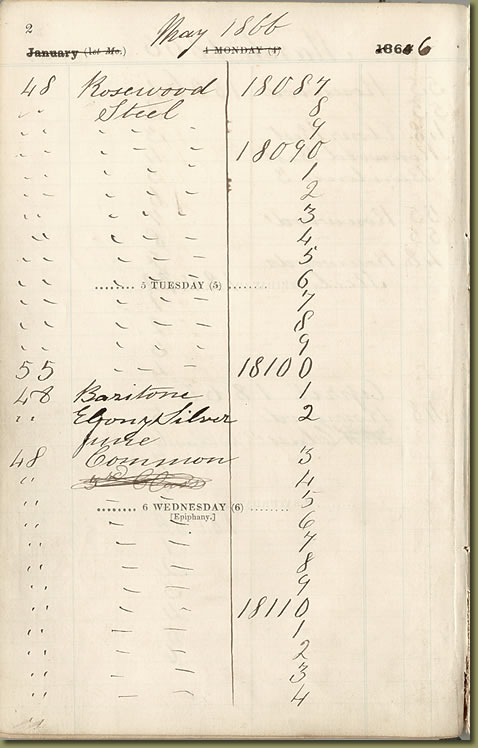 2 May 1866
January (1st Mo.) 4 MONDAY (4) 1864 6
48 Rosewood 18087
Steel 8
" " " " 9
" " " " 18090
" " " " 1
" " " " 2
" " " " 3
" " " " 4
" " " " 5
" " " " 6
5 TUESDAY (5)
" " " " 7
" " " " 8
" " " " 9
55 " " 18100
48 Baritone 1
" " Ebony Silver 2
June
48 Common 3
" " 4
" " " " 5
6 WEDNESDAY (6)
[Epiphany.]
" " " " 6
" " " " 7
" " " " 8
" " " " 9
" " " " 18110
" " " " 1
" " " " 2
" " " " 3
" " " " 4